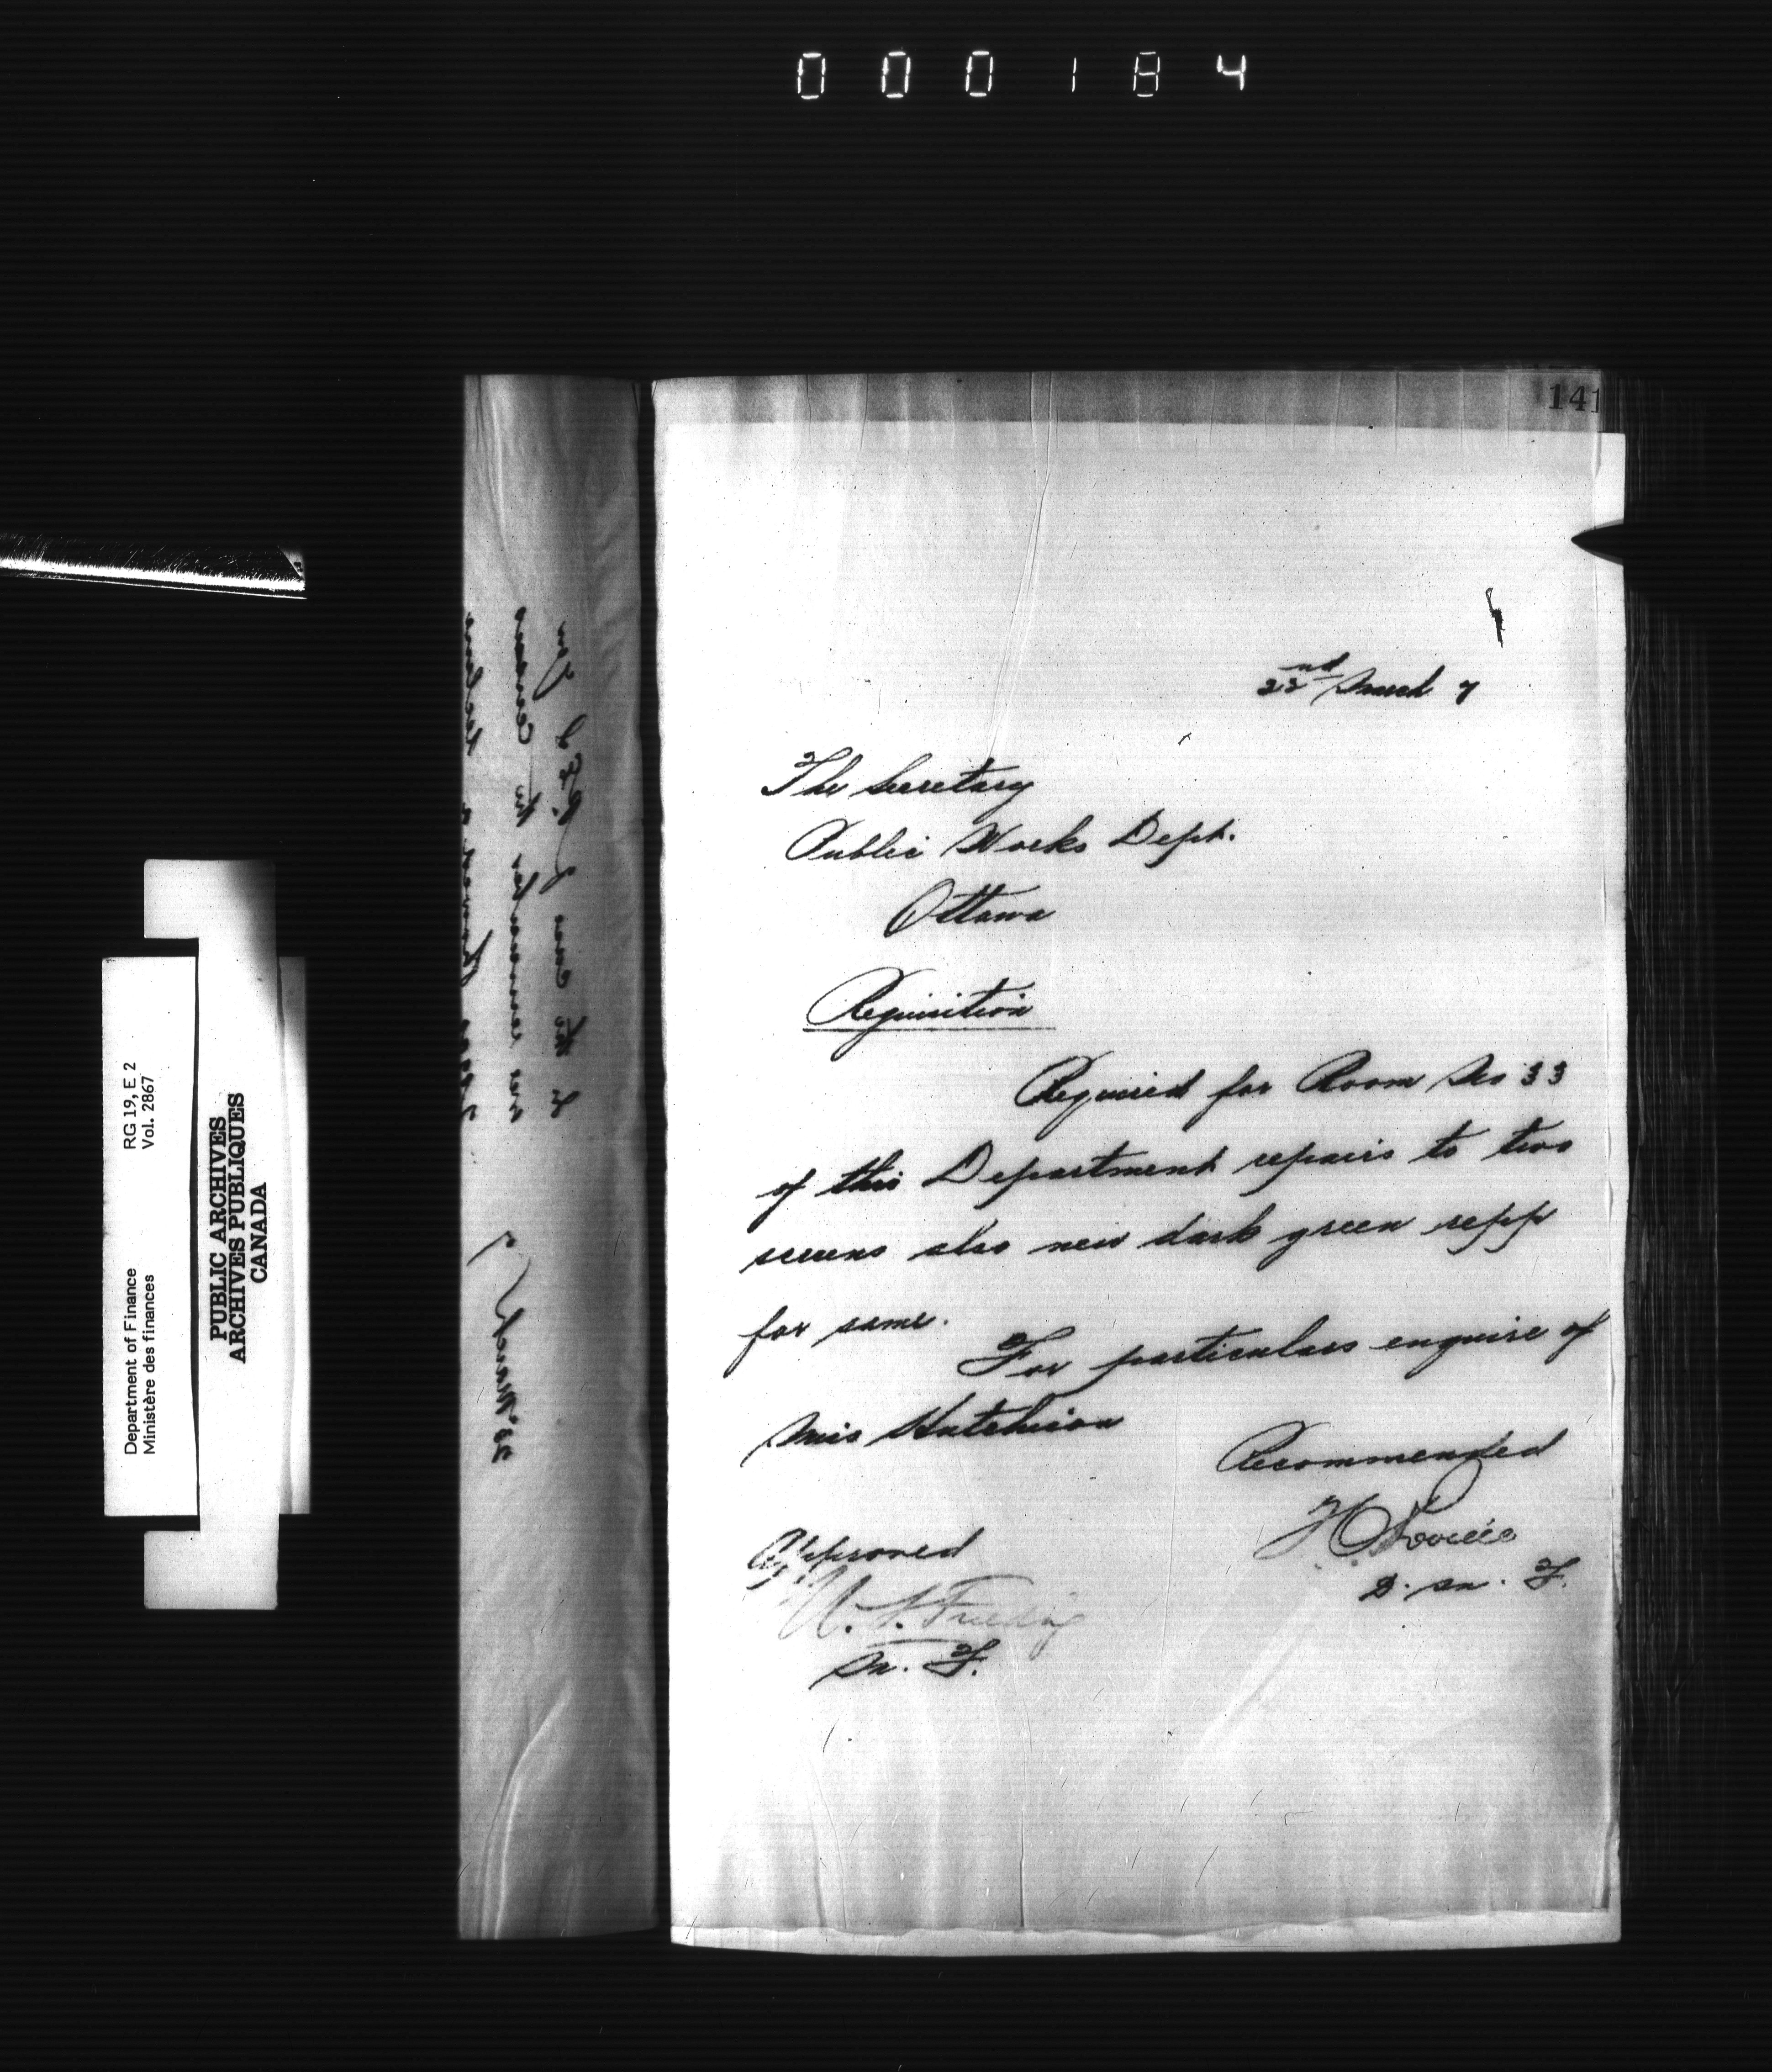 000184
141
22nd March 7
The Secretary
Public Works Dept.
Ottawa
Requisition
Required for Room No 33
of this Department repairs to two
screens also new dark green repp
for same.
For particulars enquire of
Miss Hutchison
Recommended
D. M. F.
Approved
W. S. Fielding
M. F.
Department of Finance RG 19, E 2
Ministère des finances Vol. 2867
PUBLIC ARCHIVES
ARCHIVES PUBLIQUES
CANADA